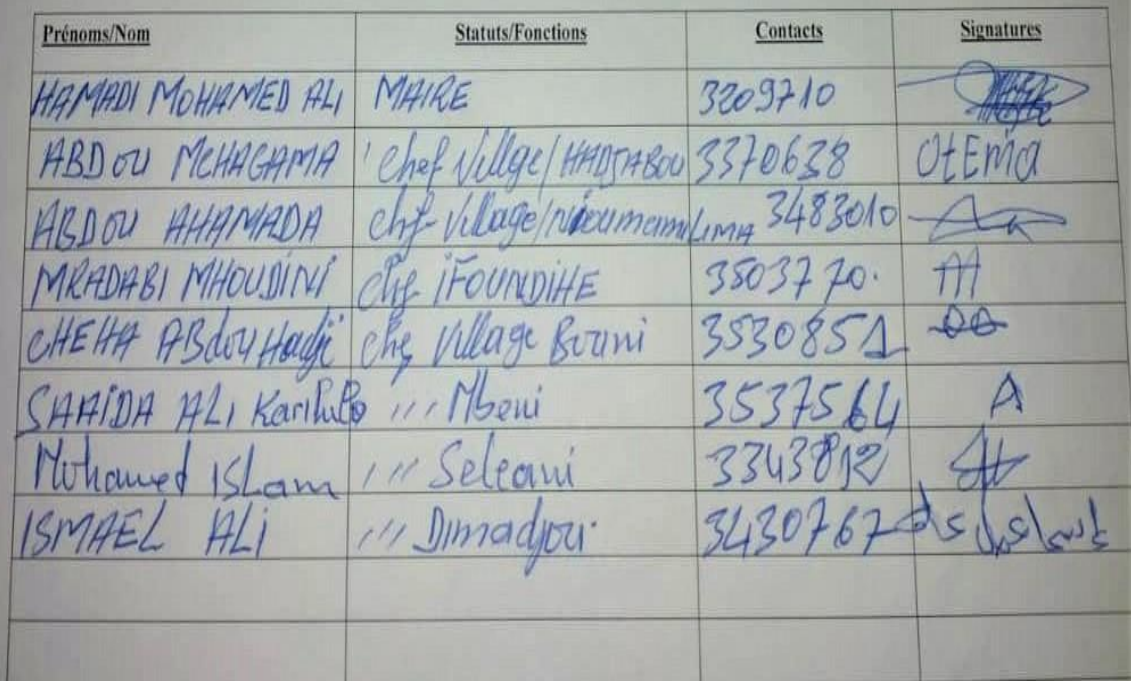 Prénoms/Nom Statuts/Fonctions Contacts Signatures
HAMADI MOHAMED ALI MAIRE 3209710
ABDOU MCHAGAMA Chef Village/HADJABOU 3370638 OtEma
ABDOU AHAMADA chef Village/ 3483010
MRADABI MHOUDINI chef IFOUNDIHE 3503770.
CHEHA ABdou Hadji chef Village Bouni 3530851
SAAIDA ALI ''' Mbeni 3537564
Mohamed ISLam ''' Seleani 3343812
ISMAEL ALI ''' Dimadjou 3430767